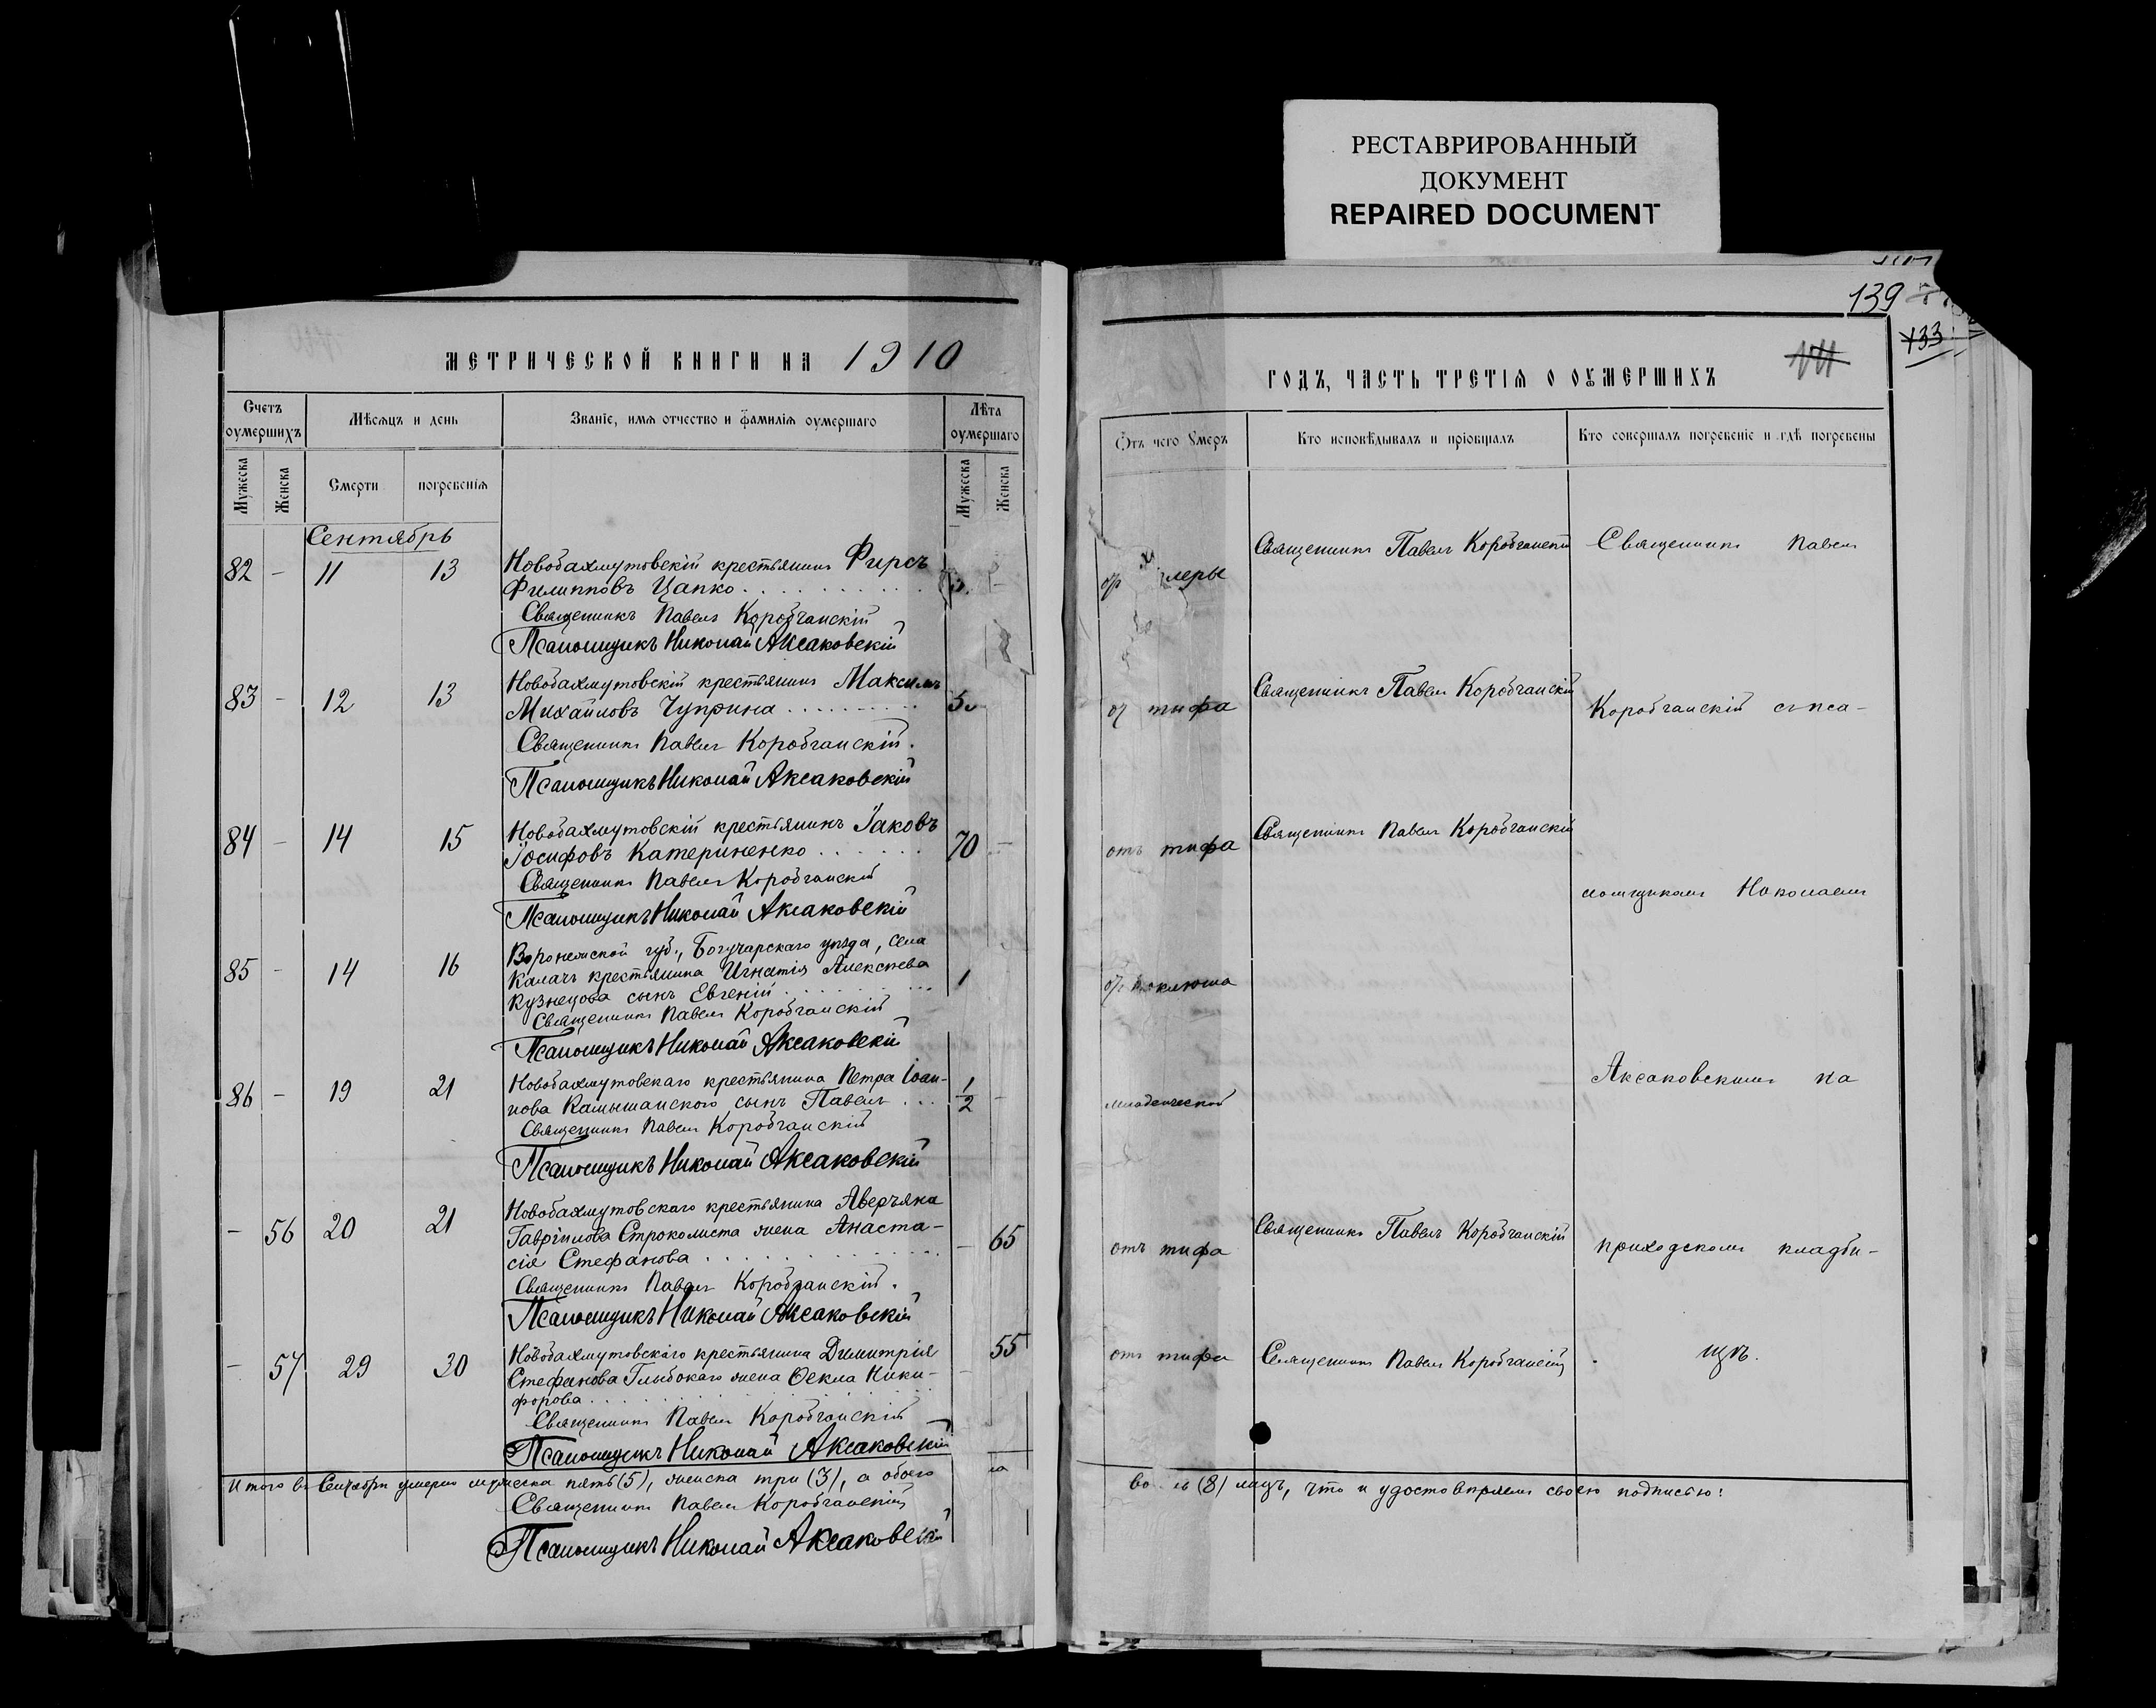 РЕСТАВРИРОВАННЫЙ
ДОКУМЕНТ
REPAIRED DOCUMENT
139
133
МЕТРИЧЕСКОЙ КНИГИ НА 1910
ГОДЪ, ЧАСТЬ ТРЕТІЯ О ОУМЕРШИХЪ
Счетъ оумершихъ
Мѣсяцъ и день
Званіе, имя отчество и фамилія оумершаго
Лѣта оумершаго
Отъ чего Умеръ
Кто исповѣдывалъ и пріобщалъ
Кто совершалъ погребеніе и гдѣ погребены
Мужеска
Женска
Смерти
погребенія
Мужеска
Женска
Сентябрь
82 - 11 13
Новобахмутовскій крестьянинъ Фирсъ
Филипповъ Цапко
Священникъ Павелъ Коробчанскій
Псаломщикъ Николай Аксаковскій
леры
Священникъ Павелъ Коробчанскій
Священникъ Павелъ
83 - 12 13
Новобахмутовскій крестьянинъ Максимъ
Михайловъ Чуприна
Священникъ Павелъ Коробчанскій.
Псаломщикъ Николай Аксаковскій
тифа
Священникъ Павелъ Коробчанскій
Коробчанскій съ пса-
84 - 14 15
Новобахмутовскій крестьянинъ Іаковъ
Іосифовъ Катериненко 70 -
Священникъ Павелъ Коробчанскій
Псаломщикъ Николай Аксаковскій
отъ тифа
Священникъ Павелъ Коробчанскій
ломщикомъ Николаемъ
85 - 14 16
Воронежской губ., Богучарскаго уѣзда, села
Калачъ крестьянина Игнатія Алексѣева
Кузнецова сынъ Евгеній 1
Священникъ Павелъ Коробчанскій
Псаломщикъ Николай Аксаковскій
коклюша
Аксаковскимъ на
86 - 19 21
Новобахмутовскаго крестьянина Петра Іоан-
нова Камышанского сынъ Павелъ 1/2 -
Священникъ Павелъ Коробчанскій
Псаломщикъ Николай Аксаковскій
младенческой
- 56 20 21
Новобахмутовскаго крестьянина Аверьяна
Гавріилова Строколиста жена Анаста-
сія Стефанова - 65
Священникъ Павелъ Коробчанскій.
Псаломщикъ Николай Аксаковскій
отъ тифа
Священникъ Павелъ Коробчанскій
приходскомъ кладби-
- 57 29 30
Новобахмутовскаго крестьянина Димитрія
Стефанова Глыбокаго жена Ѳекла Ники-
форова - 55
Священникъ Павелъ Коробчанскій
Псаломщикъ Николай Аксаковскій
отъ тифа
Священникъ Павелъ Коробчанскій
щѣ.
Итого въ Сентябрѣ умерло мужеска пять (5), женска три (3), а обоего
(8) лицъ, что и удостовѣряемъ своею подписью:
Священникъ Павелъ Коробчанскій
Псаломщикъ Николай Аксаковскій